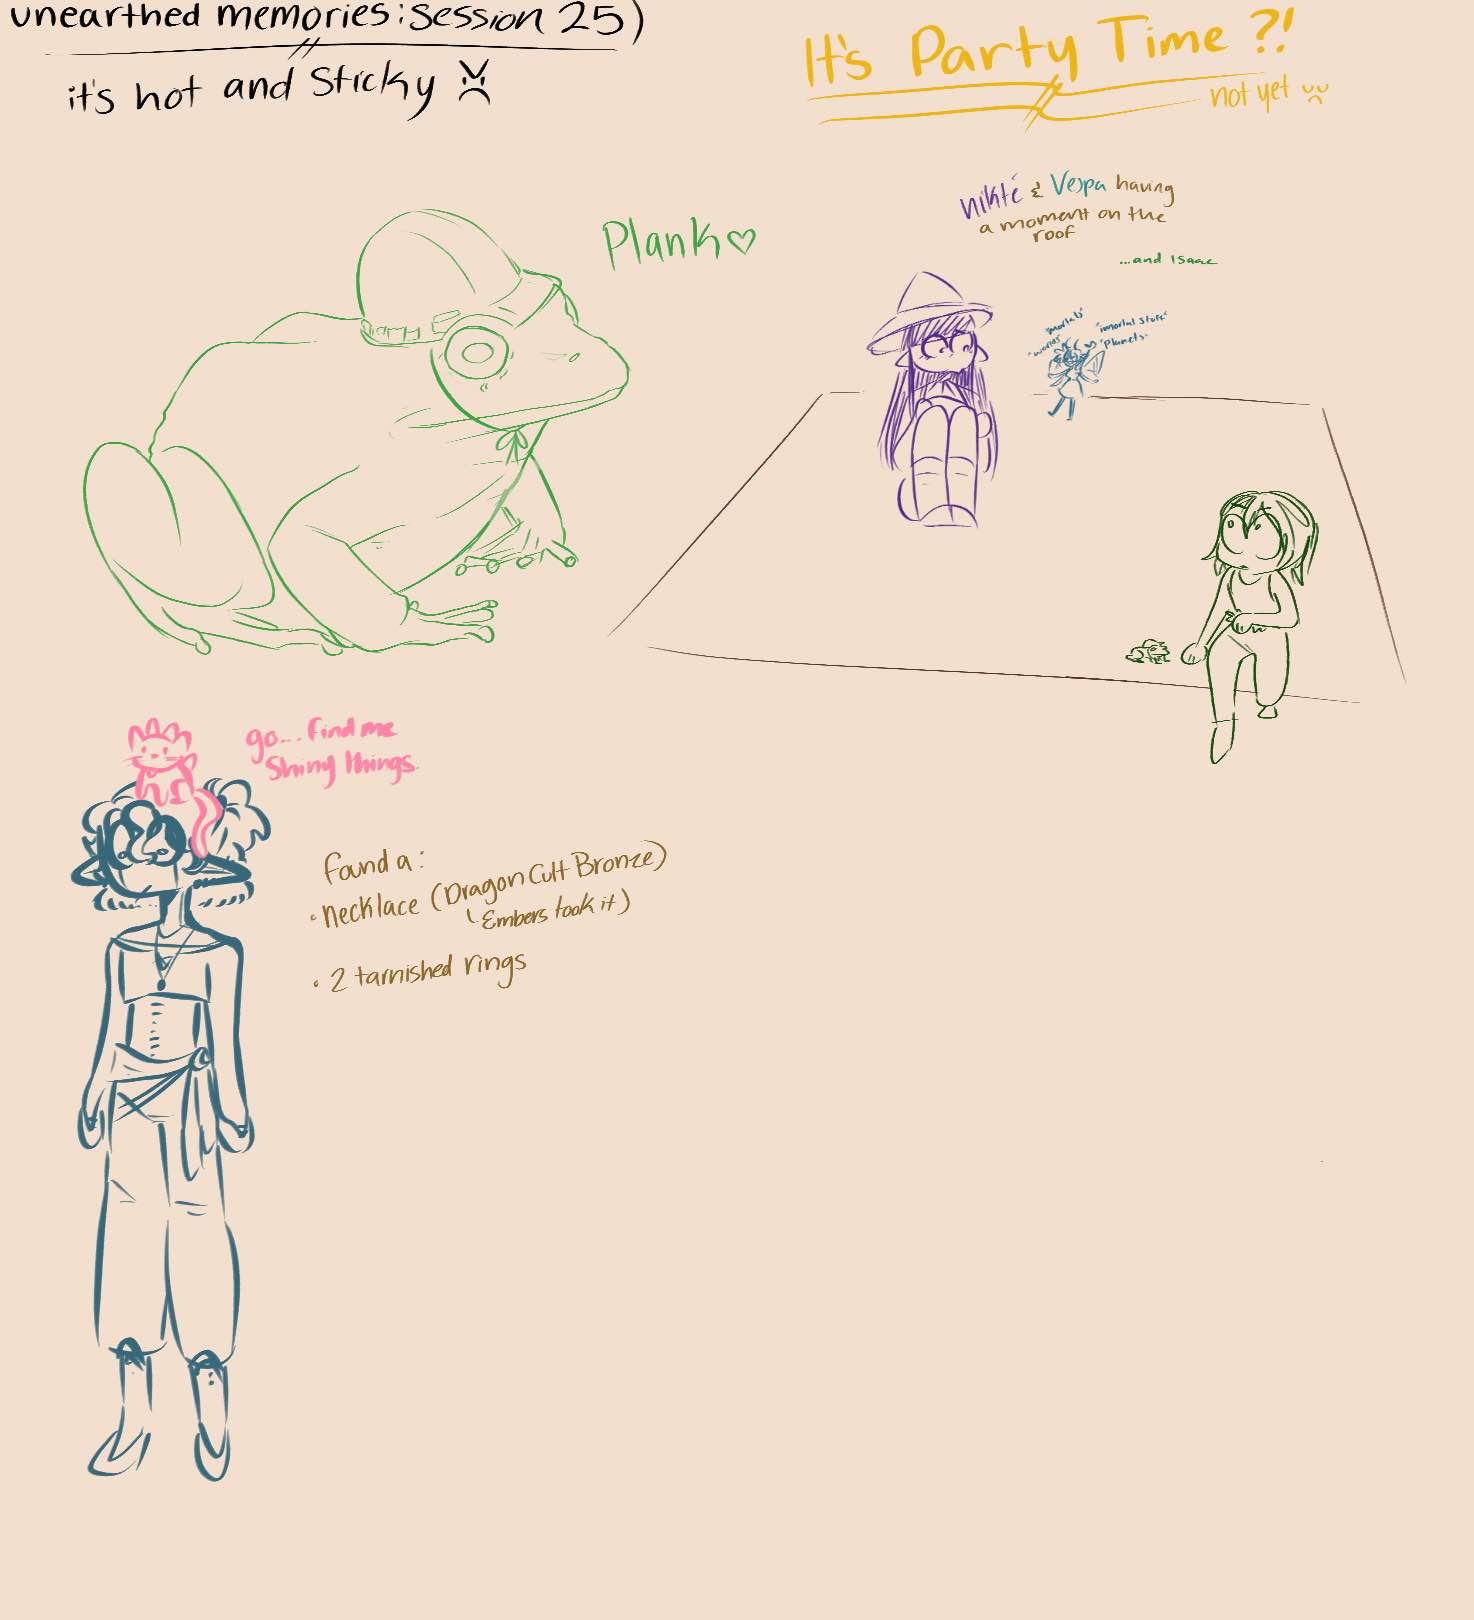 unearthed memories: Session 25)
it's hot and Sticky
It's Party Time ?!
not yet
Plank
Nikté & Vespa having
a moment on the
roof
...and Isaac
"mortals"
"imortal stuff"
"worlds"
"planets"
go... find me
Shiny things.
found a:
• necklace (Dragon Cult Bronze)
Embers took it)
• 2 tarnished rings